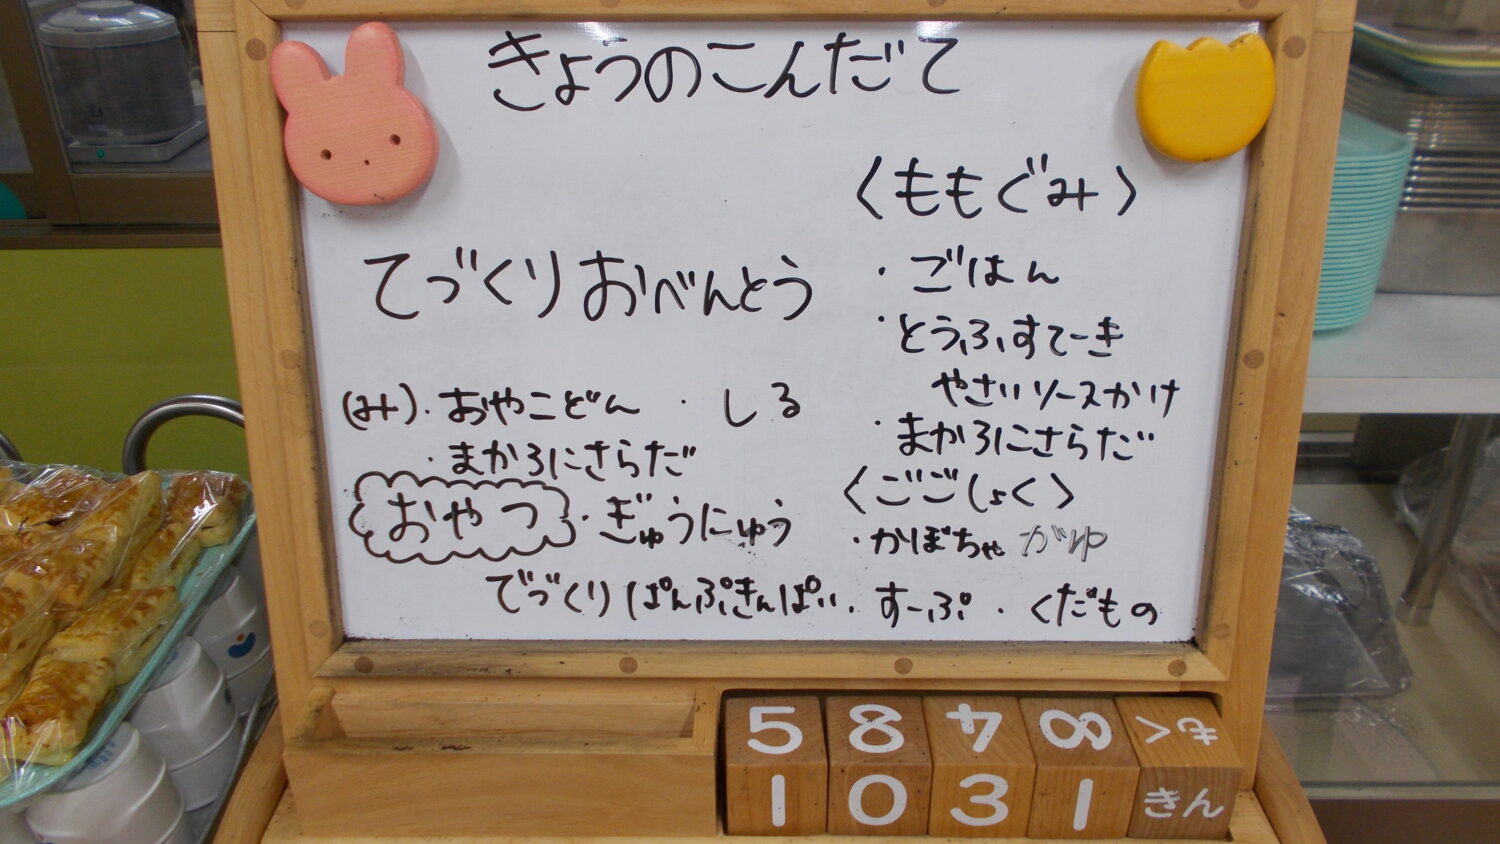 きょうのこんだて
てづくりおべんとう
(み)・おやこどん ・しる
・まかろにさらだ
おやつ・ぎゅうにゅう
てづくりぱんぷきんぱい
〈ももぐみ〉
・ごはん
・とうふすてーき
やさいソースかけ
・まかろにさらだ
〈ごごしょく〉
・かぼちゃがゆ
・すーぷ・くだもの
5 8 4 8 もく
1 0 3 1 きん